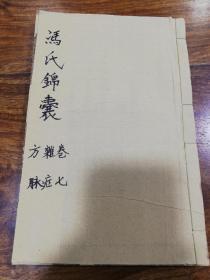 馮氏錦囊
雜症
卷七
方脉